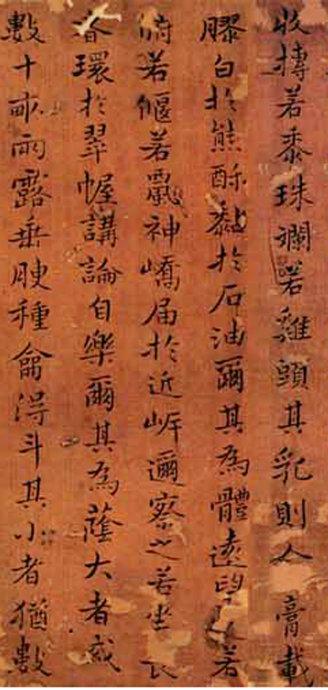 收摶若黍珠斕若雞頭其乳則人膏載
膠白於熊酥黏於石油爾其為體遠望若
俯若偃若戲神嶠屆於近岍邇察之若坐
環於翠幄講論自樂爾其為蔭大者或
數十畝雨露垂腴種龠淂斗其小者猶數